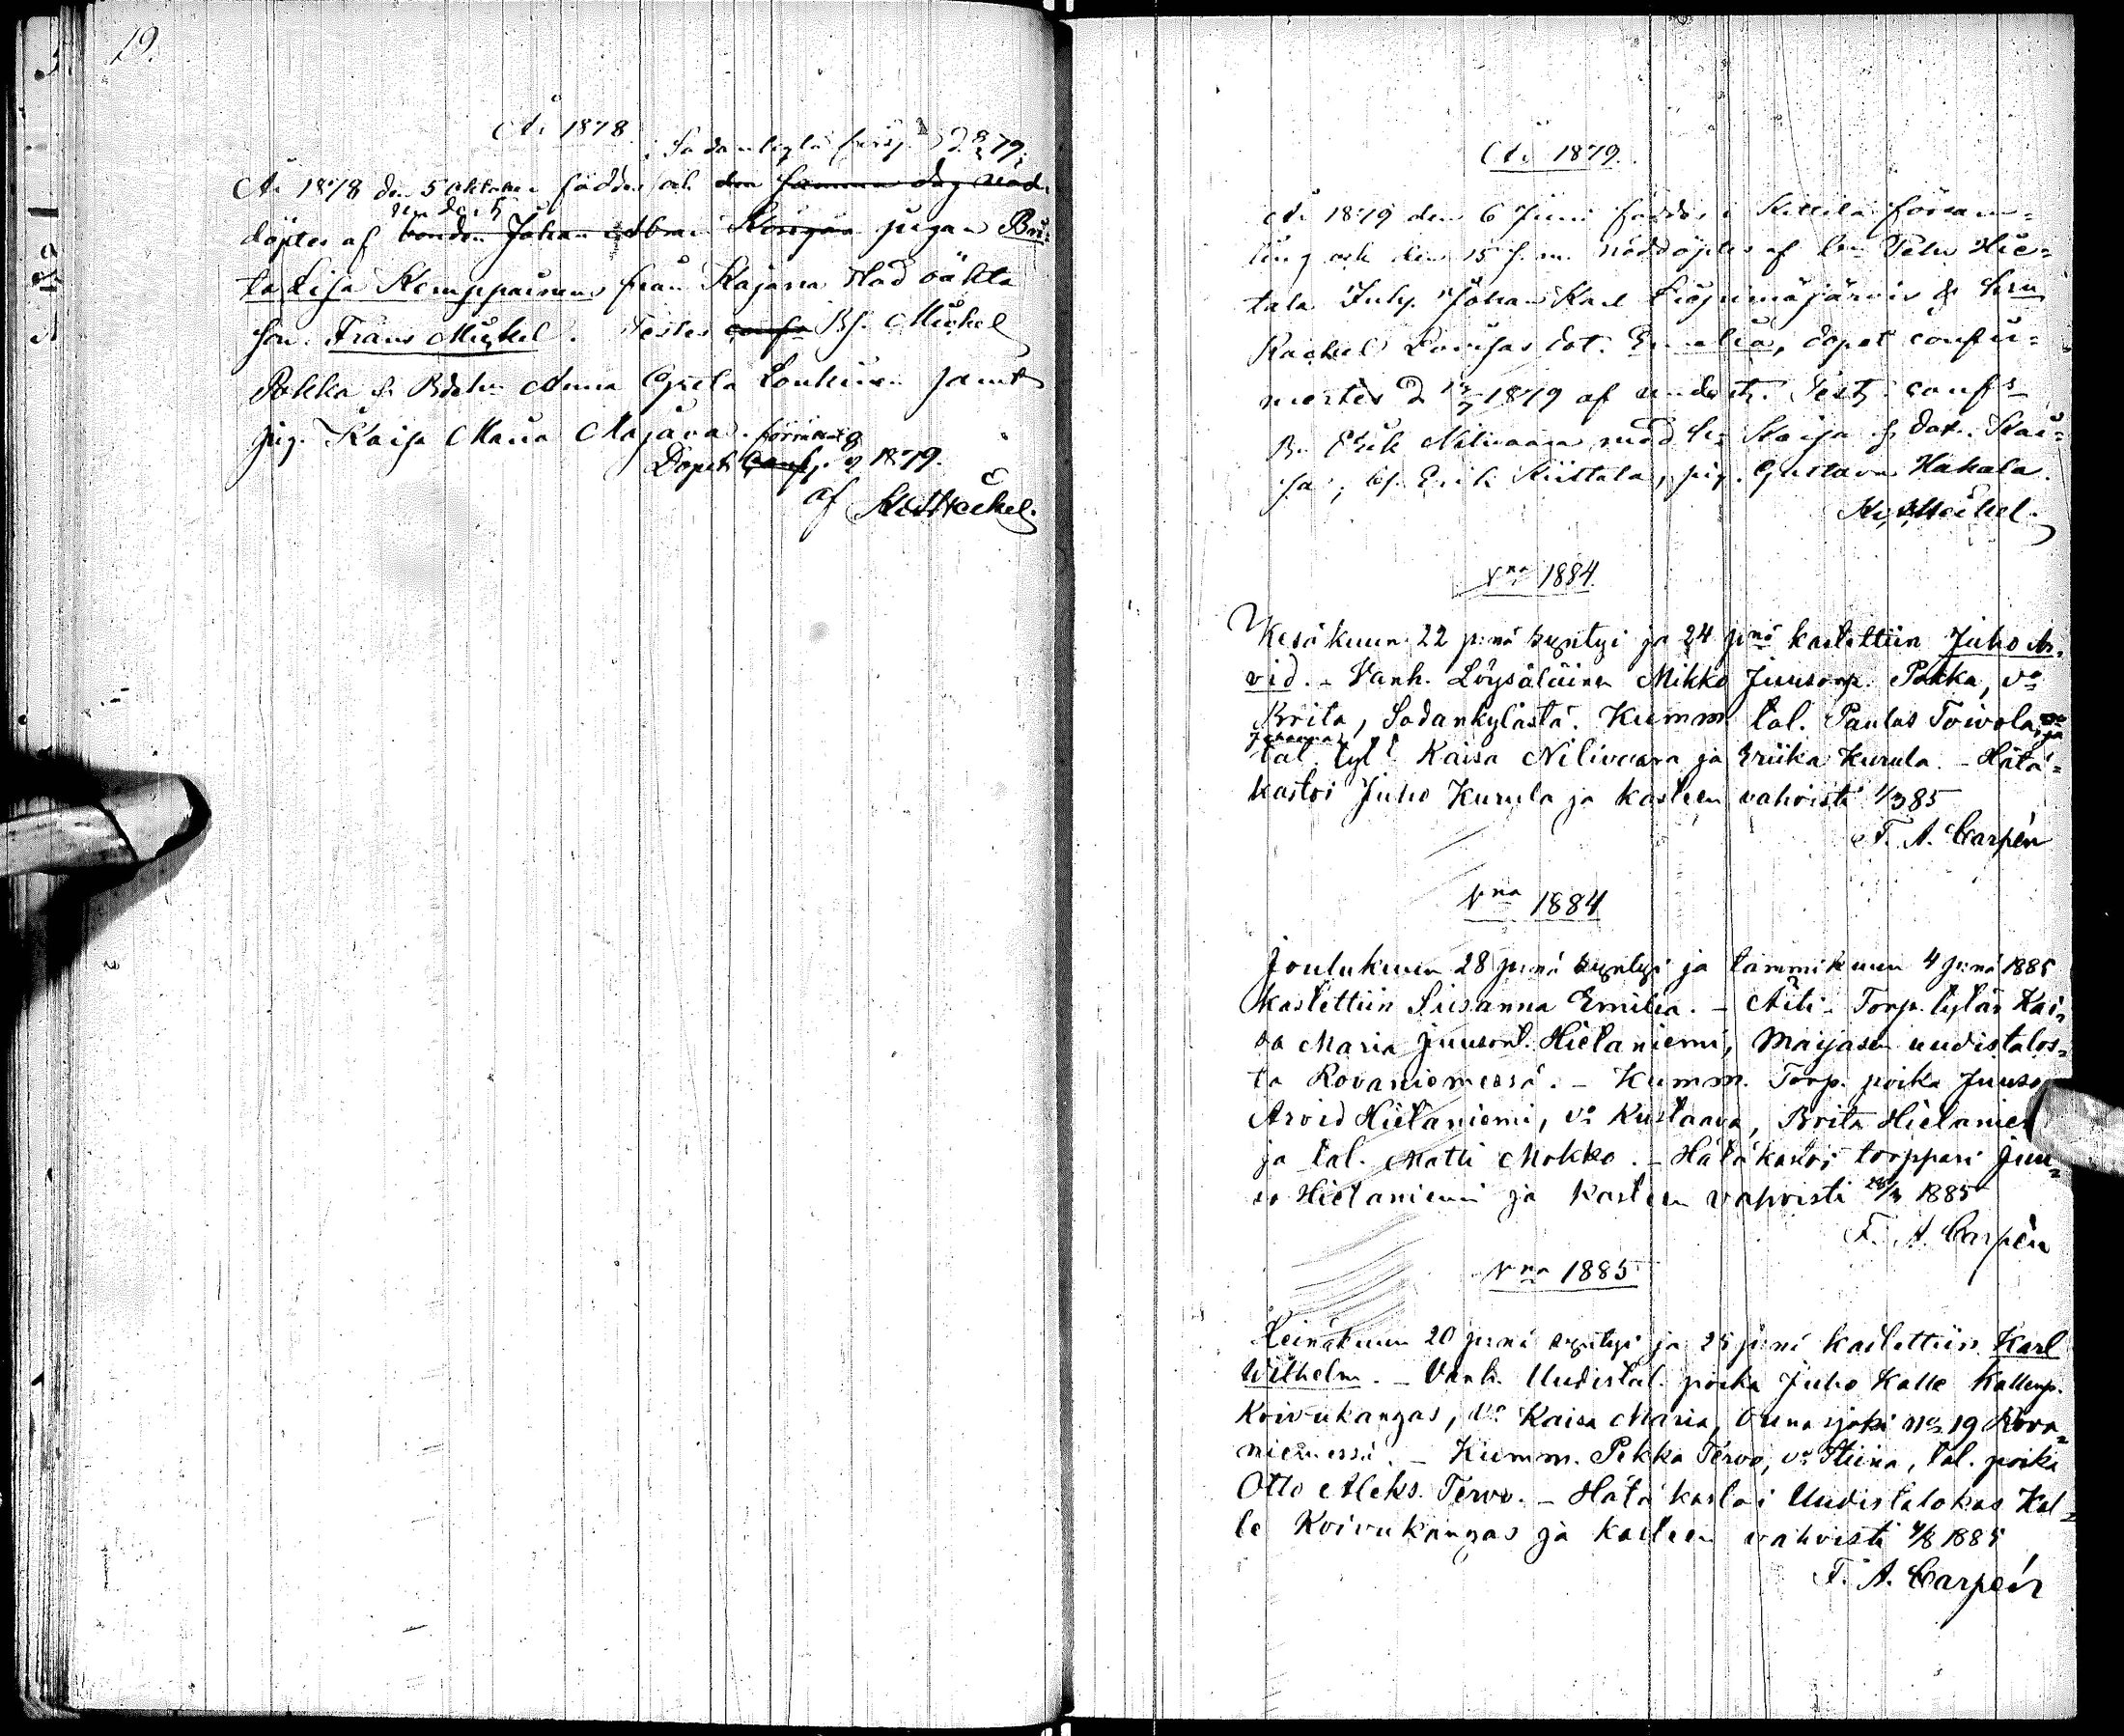 19.
År 1878
År 1878 den 5 Oktober föddes och den samma dag nöd
döptes af bonden Johan Korgan pigan Bri-
ta Lisa Kemppainens från Kajana stad oäkta
son Frans Mickel. Testes Bs. Mickel
Pokka & Bdotr. Anna Greta Lonkinen samt
pig. Kaisa Maria Majava.
Döpet 1879.
af
År 1879.
År 1879 den 6 Juni föddes i Kittilä försam=
ling och den 15 s. m. nöddöptes af Hie=
tala Johan Karl & hru
Rachel Lovisas dot. Emelia, döpet confir=
mertes d 1879 af undert. Test. conf
B. Erik Nilivaara med h. Kaisa & dot. Kai=
sa, bs. Erik Kiittala, pig. Gustava Hakala.
Vna 1884
Kesäkuun 22 p:nä syntyi ja 24 p:nä kastettiin Juho Ar=
vid. - Vanh. Löysäläinen Mikko Juusonp. Pokka, vo
Brita, Sodankylästä. Kumm. tal. Paulus Toivola, ja
Johanna
tal. tyt. Kaisa Nilivaara ja Eriika Kurula. - Hätä=
kastoi Juho Kurula ja kasteen vahvisti 1/3 85
F. A. Carpén
Vna 1884
Joulukuun 28 p:nä syntyi ja tammikuun 4 p:nä 1885
kastettiin Susanna Emilia. - Äiti: Torp. tytär Kai=
sa Maria Juusont. Hietaniemi, Maijasen uudistalos=
ta Rovaniemessä. - Kumm. Torp. poika Juuso
Arvid Hietaniemi, vo Kustaava, Brita Hietaniem
ja tal. Matti Mokko. - Hätäkastoi torppari Juu=
so Hietaniemi ja kasteen vahvisti 1885
F. A. Carpén
Vna 1885
Heinäkuun 20 p:nä syntyi ja 25 p:nä kastettiin Karl
Wilhelm. - Vanh. Uudistal. poika Juho Kalle Kallenp.
Koivukangas, vo Kaisa Maria, Ounasjoki No 19 Rova=
niemessä. - Kumm. Pekka Tervo, vo Stiina, tal. poika
Otto Aleks. Tervo. - Hätäkastoi Uudistalokas Kal=
le Koivukangas ja kasteen vahvisti 4/8 1885
F. A. Carpén